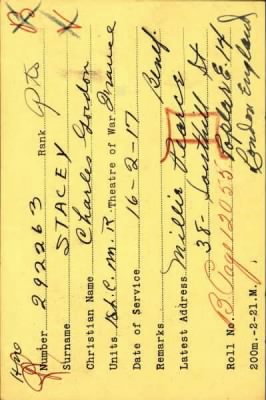 B V
Number 292263 Rank Pte
Surname STACEY
Christian Name Charles Gordon
Units 1st. C. M. R. Theatre of War France
Date of Service 16-2-17
Remarks Benf.
Latest Address Millie
38 St
Poplar E. 14
London England
Roll No. B Page 12055
200m.-2-21. M.